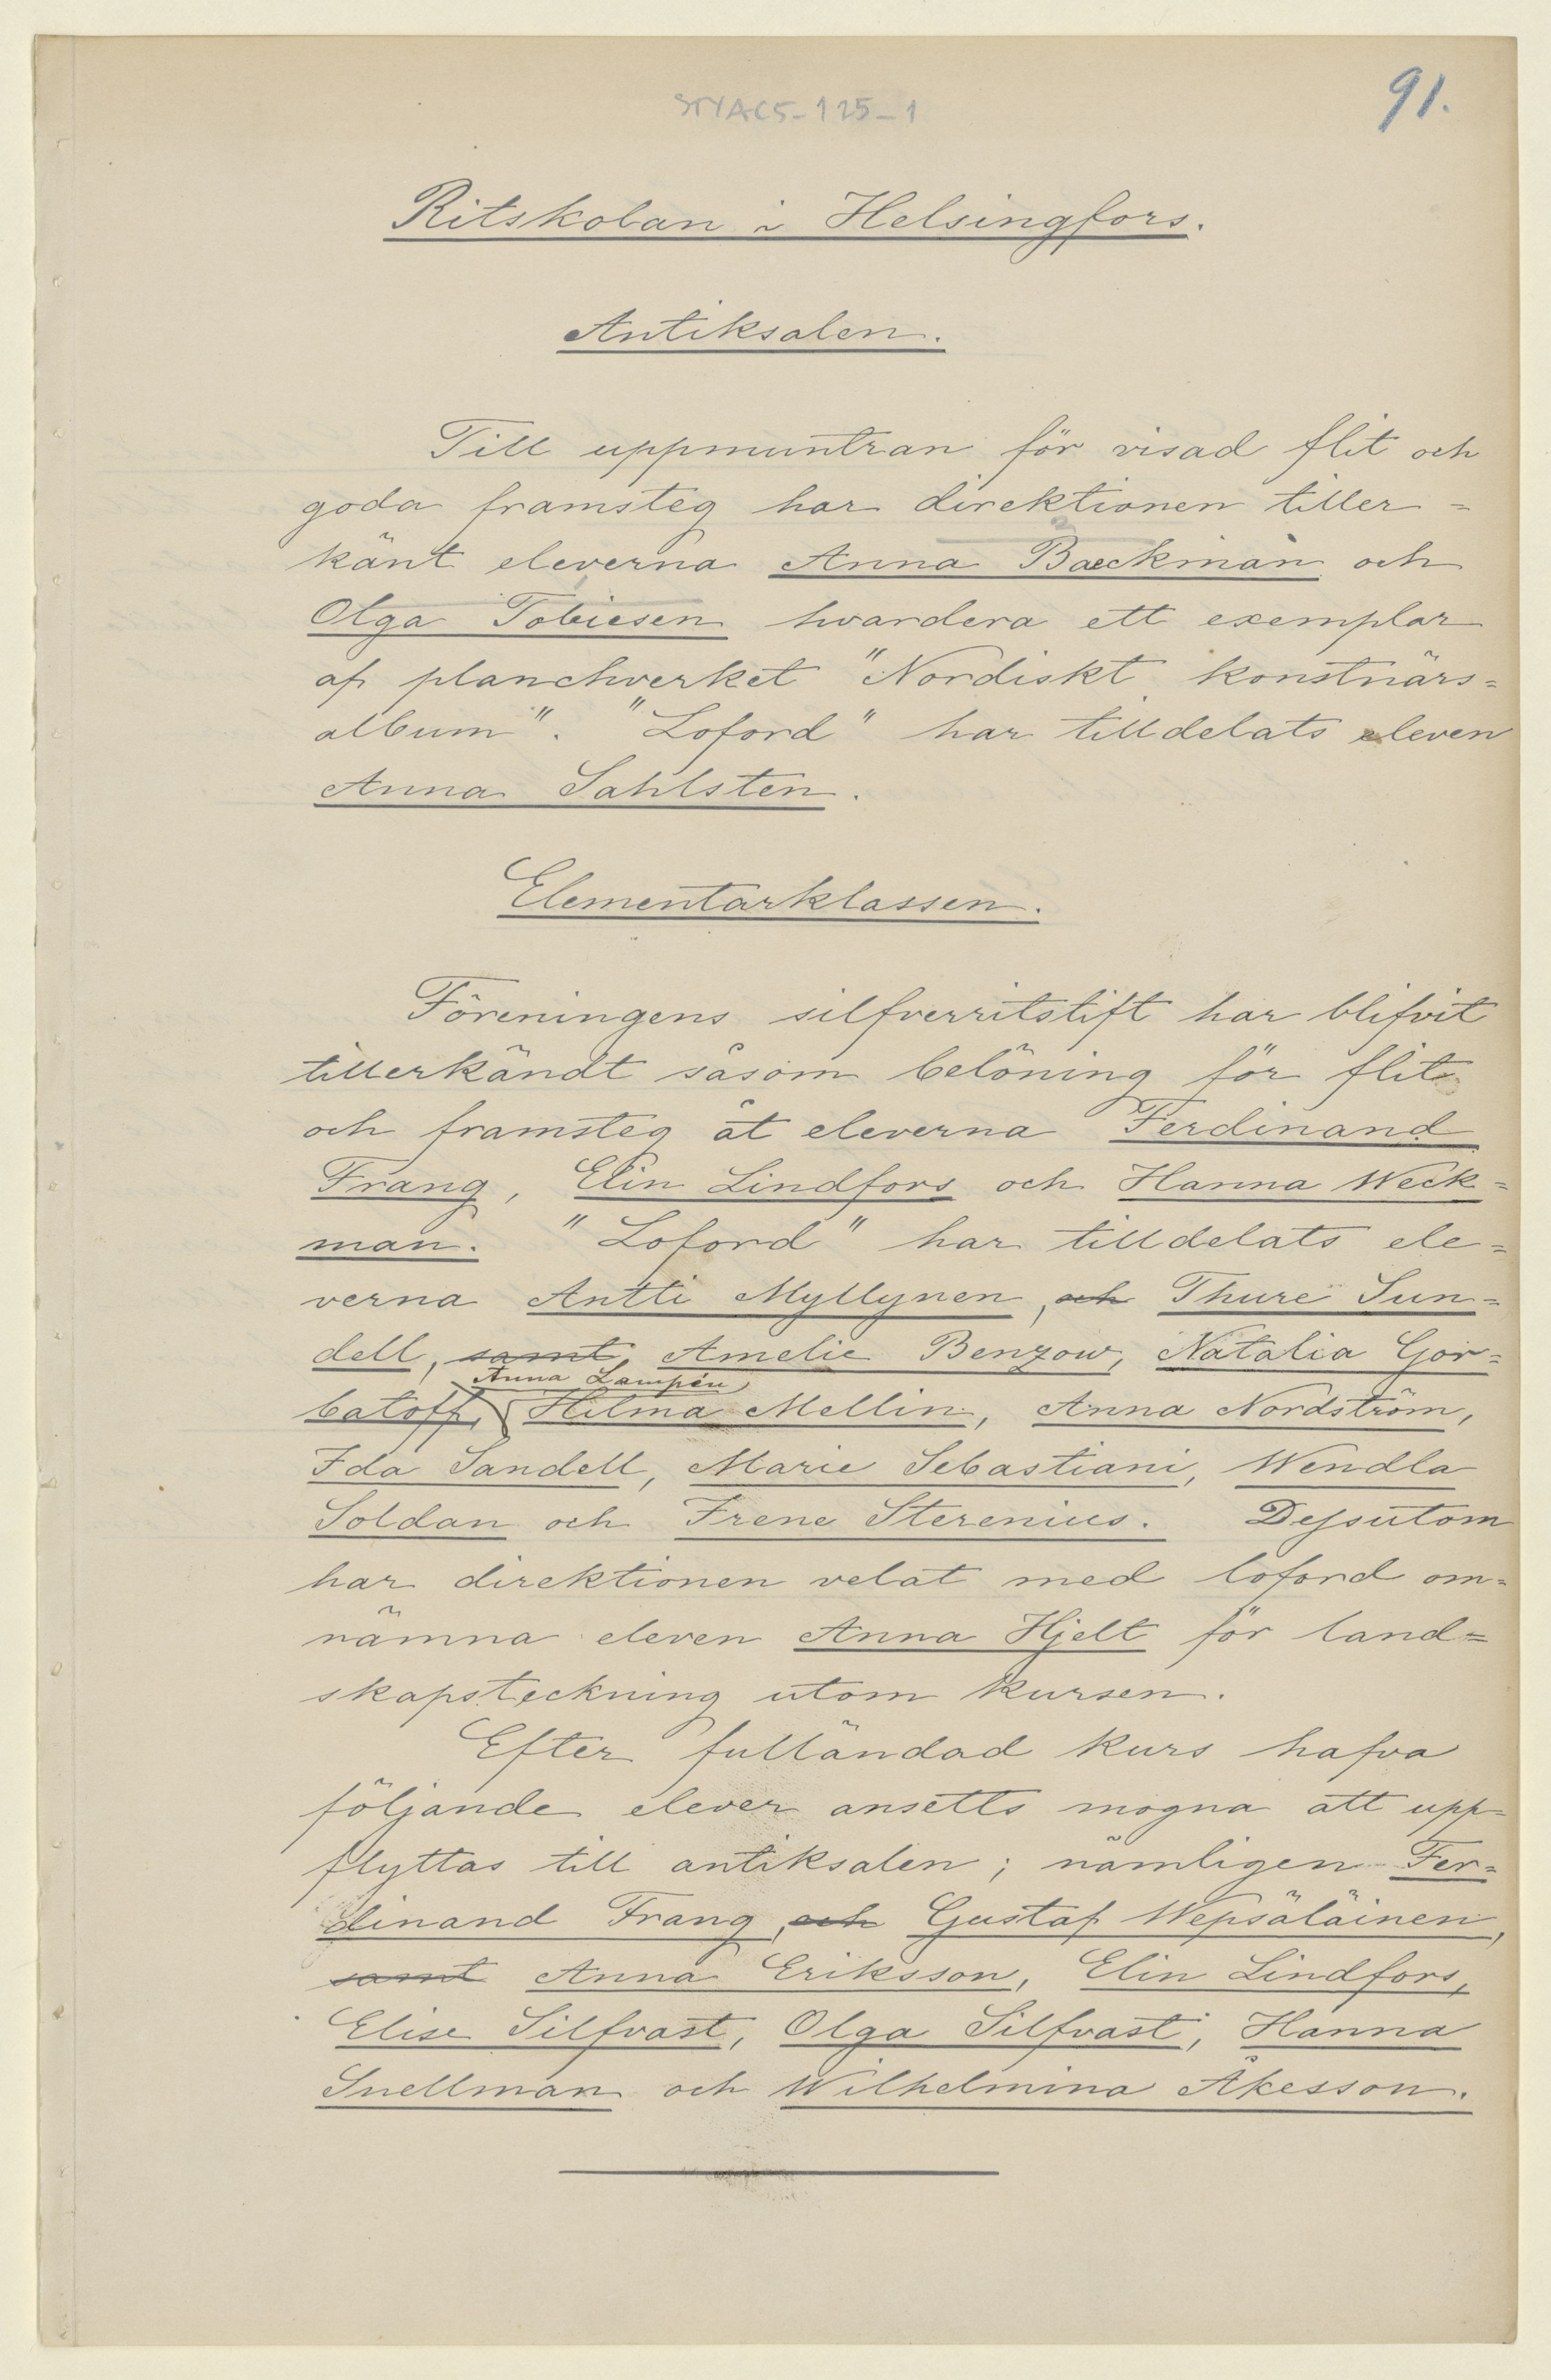 STYAC5-125-1
91.
Ritskolan i Helsingfors.
Antiksalen.
Till uppmuntran för visad flit och
goda framsteg har direktionen tiller=
känt eleverna Anna Baeckman och
Olga Tobiesen hvardera ett exemplar
af planchverket "Nordiskt konstnärs=
album". "Loford" har tilldelats eleven
Anna Sahlsten.
Elementarklassen.
Föreningens silfverritstift har blifvit
tillerkändt såsom belöning för flit
och framsteg åt eleverna Ferdinand
Frang, Elin Lindfors och Hanna Weck=
man. "Loford" har tilldelats ele=
verna Antti Myllynen, och Thure Sun=
dell, samt, Amelie Benzow, Natalia Gor=
Anna Lampén,
batoff, Hilma Mellin, Anna Nordström,
Ida Sandell, Marie Sebastiani, Wendla
Soldan och Irene Sterenius. Dessutom
har direktionen velat med loford om=
nämna eleven Anna Hjelt för land=
skapsteckning utom kursen.
Efter fulländad kurs hafva
följande elever ansetts mogna att upp=
flyttas till antiksalen; nämligen Fer=
dinand Frang, och Gustaf Wepsäläinen,
samt Anna Eriksson, Elin Lindfors,
Elise Silfvast, Olga Silfvast, Hanna
Snellman och Wilhelmina Åkesson.